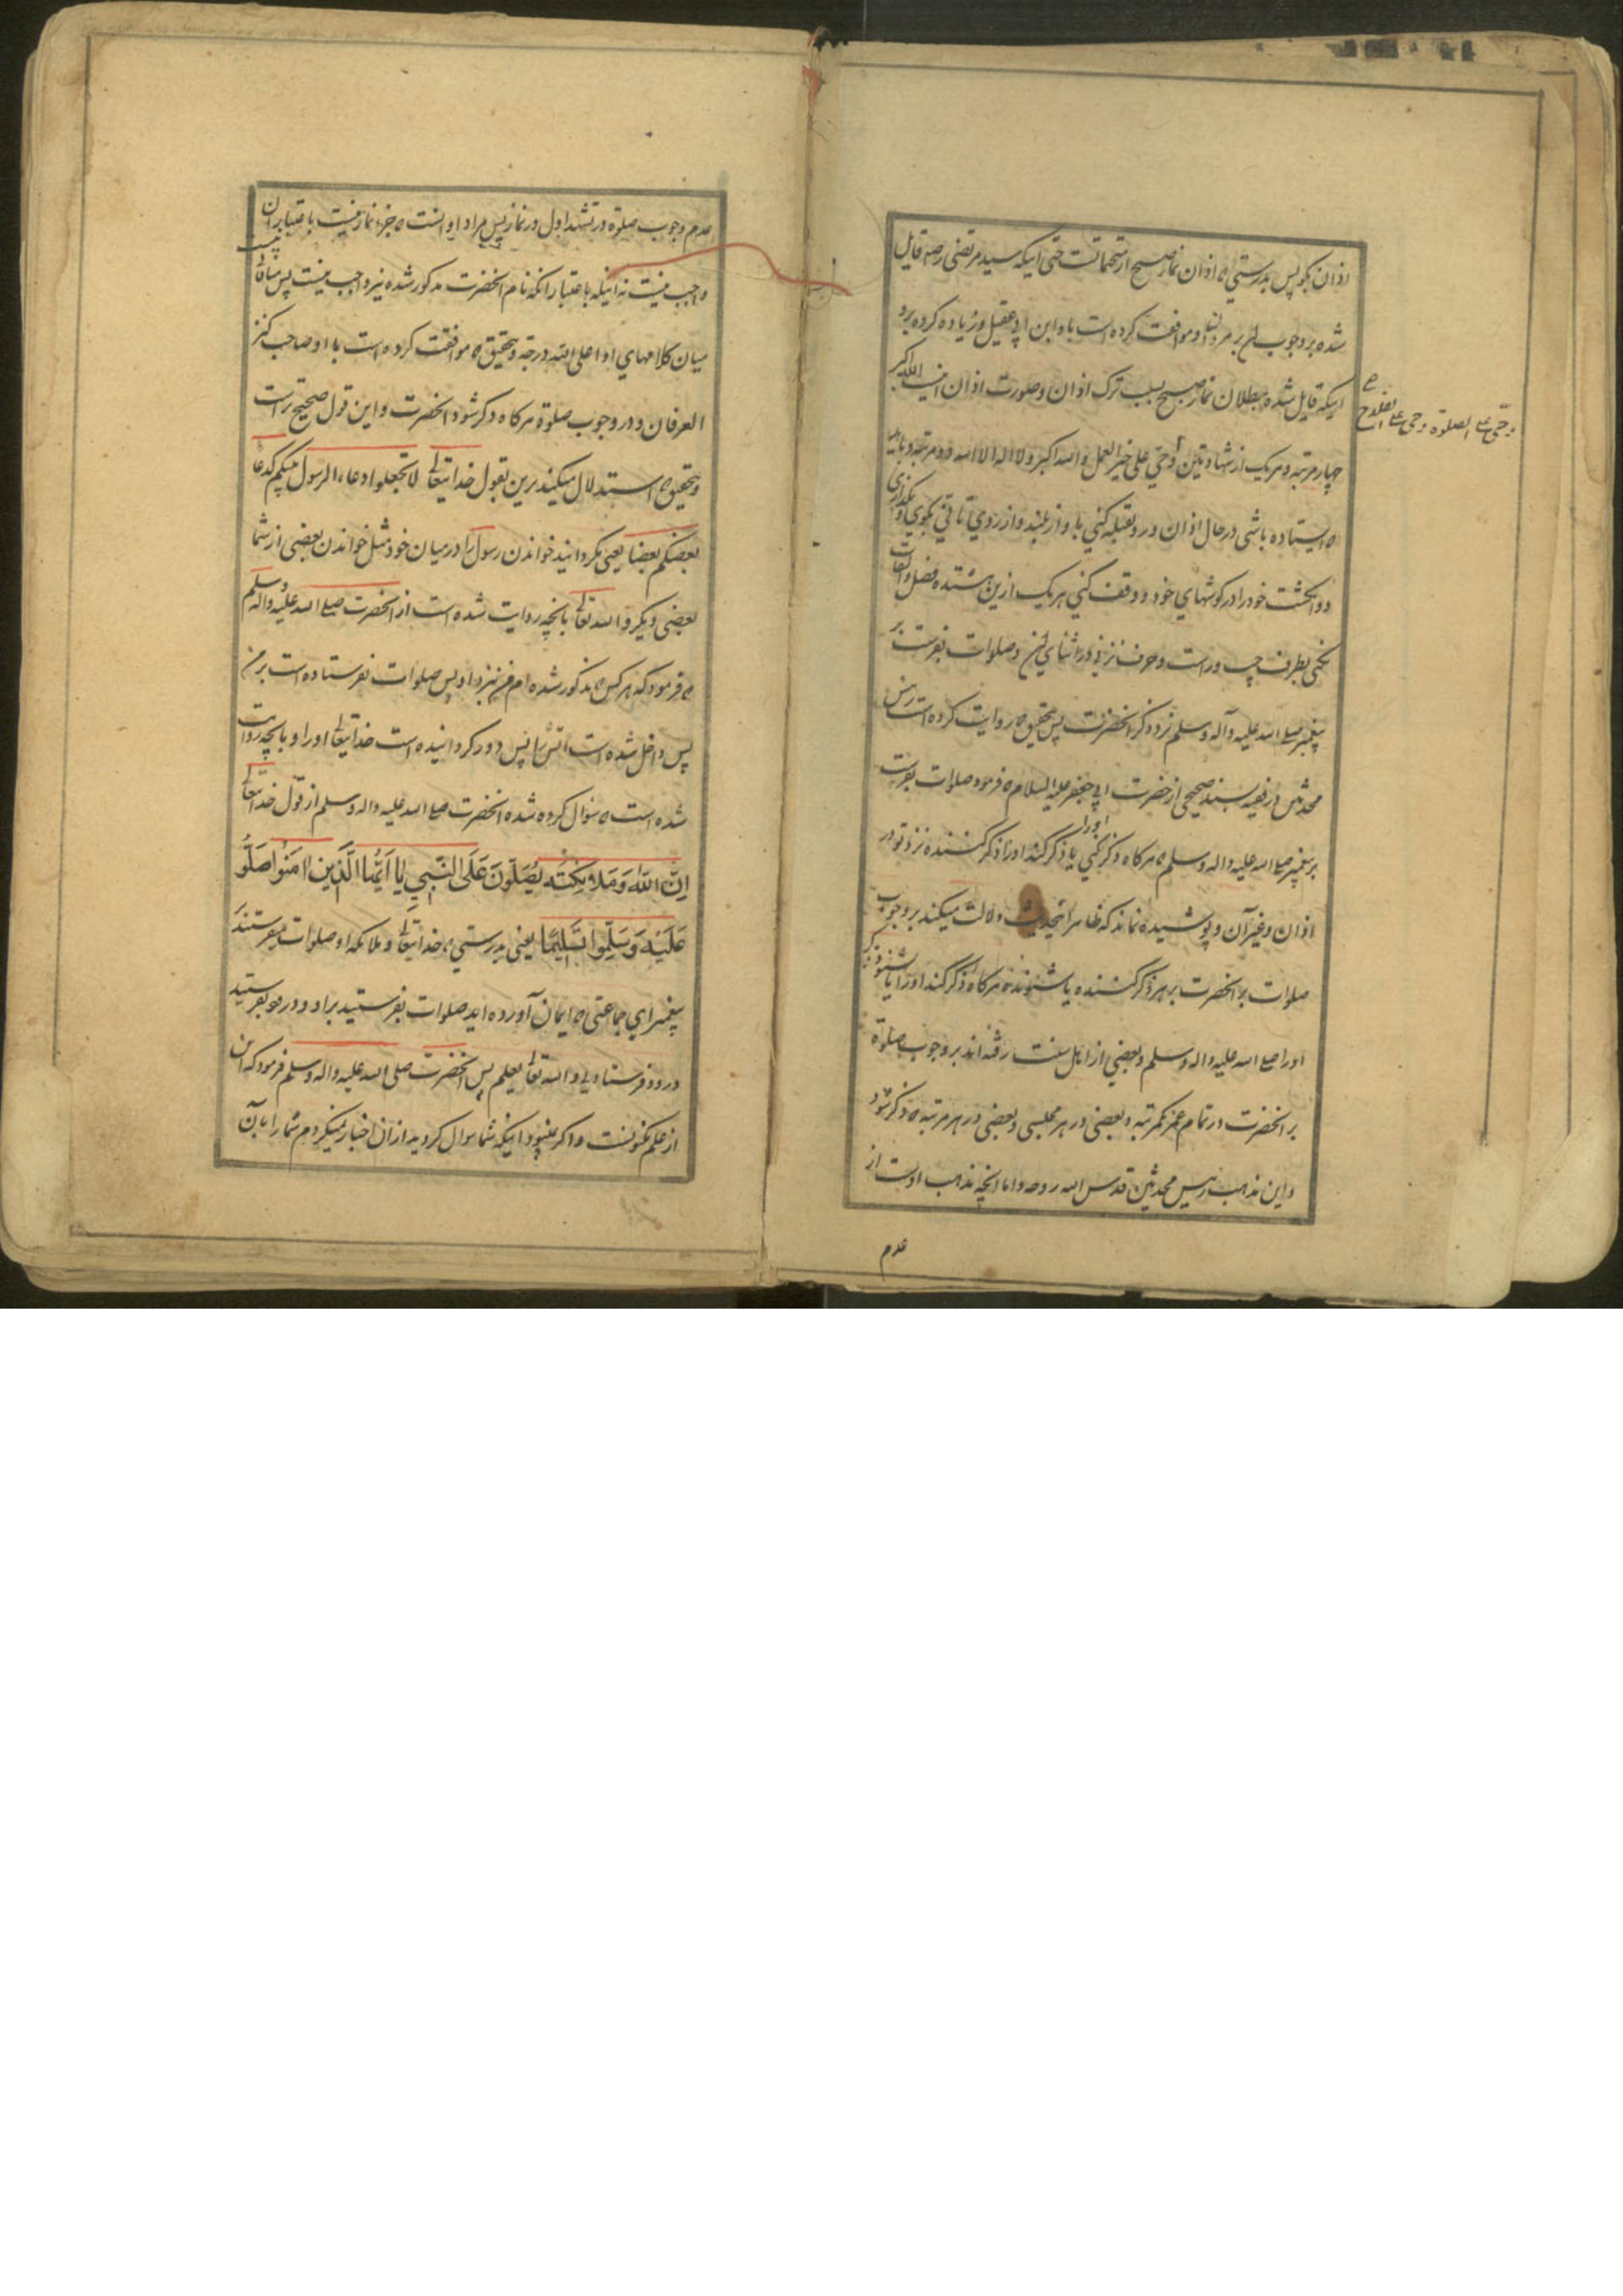 اذان بکو پس بدرستی که اذان نماز صبح از متحماتست حتی اینکه سید مرتضی رضه قایل
شده بر وجوب ان بر مردان و موافقت کرده است با و ابن ابی عقیل و زیاده کرده برو
اینکه قایل شده ببطلان نماز صبح بسبب ترک اذان و صورت اذان اینست الله اکبر
چهار مرتبه و هر یک از شهادتین و حی علی خیر العمل و الله اکبر و لا اله الا الله دو مرتبه و باید
که ایستاده باشی در حال اذان و رو بقبله کنی با واز بلند و از روی تانی بکوی و بکذاری
دو انکشت خود را در کوشهای خود و وقف کنی هر یک ازین هشتده فصل و التفات
نکنی بطرف چپ و راست و حرف نزنی در اثنای ان و صلوات بفرست بر
پیغمبر صلی الله علیه و آله و سلم نزد ذکر انحضرت پس بتحقیق که روایت کرده است رئیس
محدثین در فقیه بسند صحیحی از حضرت ابی جعفر علیه السلام که فرمود صلوات بفرست
بر پیغمبر صلی الله علیه و اله و سلم هر کاه ذکر کنی اورا یا ذکر کند اورا ذکر کننده نزد تو در
اذان و غیر آن و پوشیده نماند که ظاهر اینحدیث دلالت میکند بر وجوب
صلوات بر انحضرت بر هر ذکر کننده یا شنونده هر کاه ذکر کند اورا یا شنود ذکر
اورا صلی الله علیه و اله و سلم و بعضی از اهل سنت رفته اند بر وجوب صلوة
بر انحضرت در تمام عمر یکمرتبه و بعضی در هر مجلسی و بعضی در هر مرتبه که ذکر شود
و این مذهب رئیس محدثین قدس الله روحه و اما انچه مذهب اوست از
عدم
و حی علی الصلوة و حی علی الفلاح
عدم وجوب صلوة در تشهد اول در نماز پس مراد او انست که جزء نماز نیست باعتبار ان
واجب نیست نه اینکه باعتبار انکه نام انحضرت مذکور شده نیز واجب نیست پس منافاتی نیست
میان کلامهای او اعلی الله درجته و بتحقیق که موافقت کرده است با او صاحب کنز
العرفان در وجوب صلوة هر کاه ذکر شود انحضرت و این قول صحیح تر است
و بتحقیق که استدلال میکنند برین بقول خدایتعالی لا تجعلوا دعاء الرسول بینکم کدعاء
بعضکم بعضا یعنی مکردانید خواندن رسول را در میان خود مثل خواندن بعضی از شما
بعضی دیکر و الله تعالی بانچه روایت شده است از انحضرت صلی الله علیه و اله و سلم
که فرمود که هر کس که مذکور شده ام من نزد او پس صلوات نفرستاده است بر من
پس داخل شده است اتش را پس دور کردانیده است خدایتعالی اورا و بانچه روایت
شده است که سؤال کرده شده انحضرت صلی الله علیه و اله و سلم از قول خدایتعالی
اِنَّ اللّٰهَ وَمَلَائِكَتَهُ يُصَلُّونَ عَلَى النَّبِي يَا اَيُّهَا الَّذِينَ اٰمَنُوا صَلُّو
عَلَيْهِ وَسَلِّمُوا تَسْلِيمًا یعنی بدرستی که خدایتعالی و ملائکه او صلوات میفرستند
پیغمبر ای جماعتی که ایمان آورده اید صلوات بفرستید بر او و درود بفرستید
درود فرستادنی و الله تعالی یعلم پس انحضرت صلی الله علیه و اله و سلم فرمود که این
از علم مکنونست و اکر نمیبود اینکه شما سوال کردید از ان اخبار نمیکردم شما را بآن